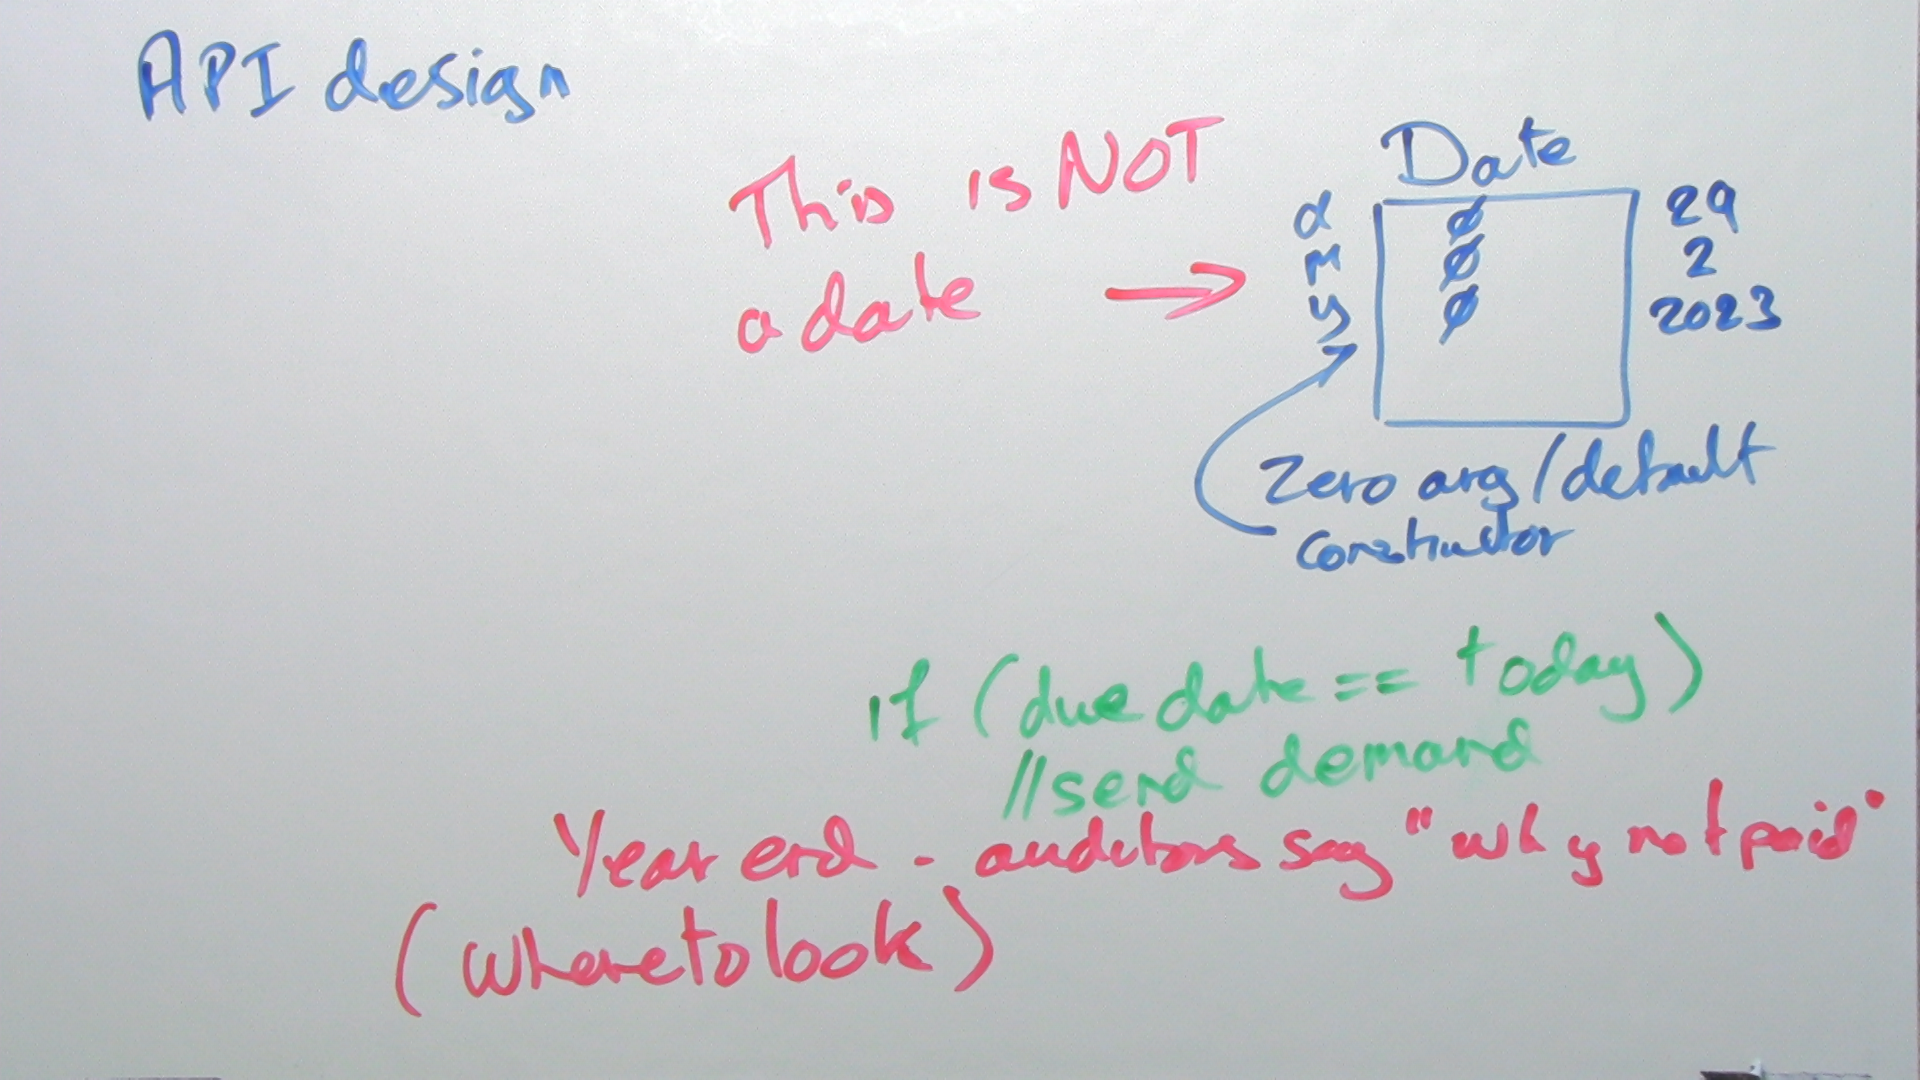 API design
This is NOT
a date →
Date
d Ø 29
m Ø 2
y Ø 2023
Zero arg/default
constructor
if (due date == today)
//send demand
Year end - auditors say "why not paid"
(where to look)